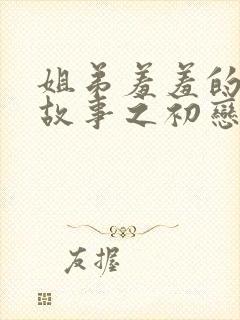 姐弟羞羞的
故事之初戀
友握